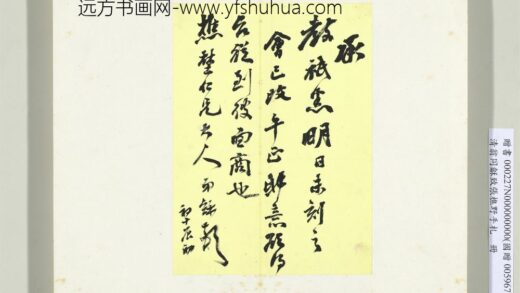 远方书画网-www.yfshuhua.com
承
教祗悉明日未刻之
會已改午正
台從到彼面商也
樵埜仁兄大人
初十辰初
贈書 000227N000000000(國贈 005967
清翁同龢致張樵野手札 冊